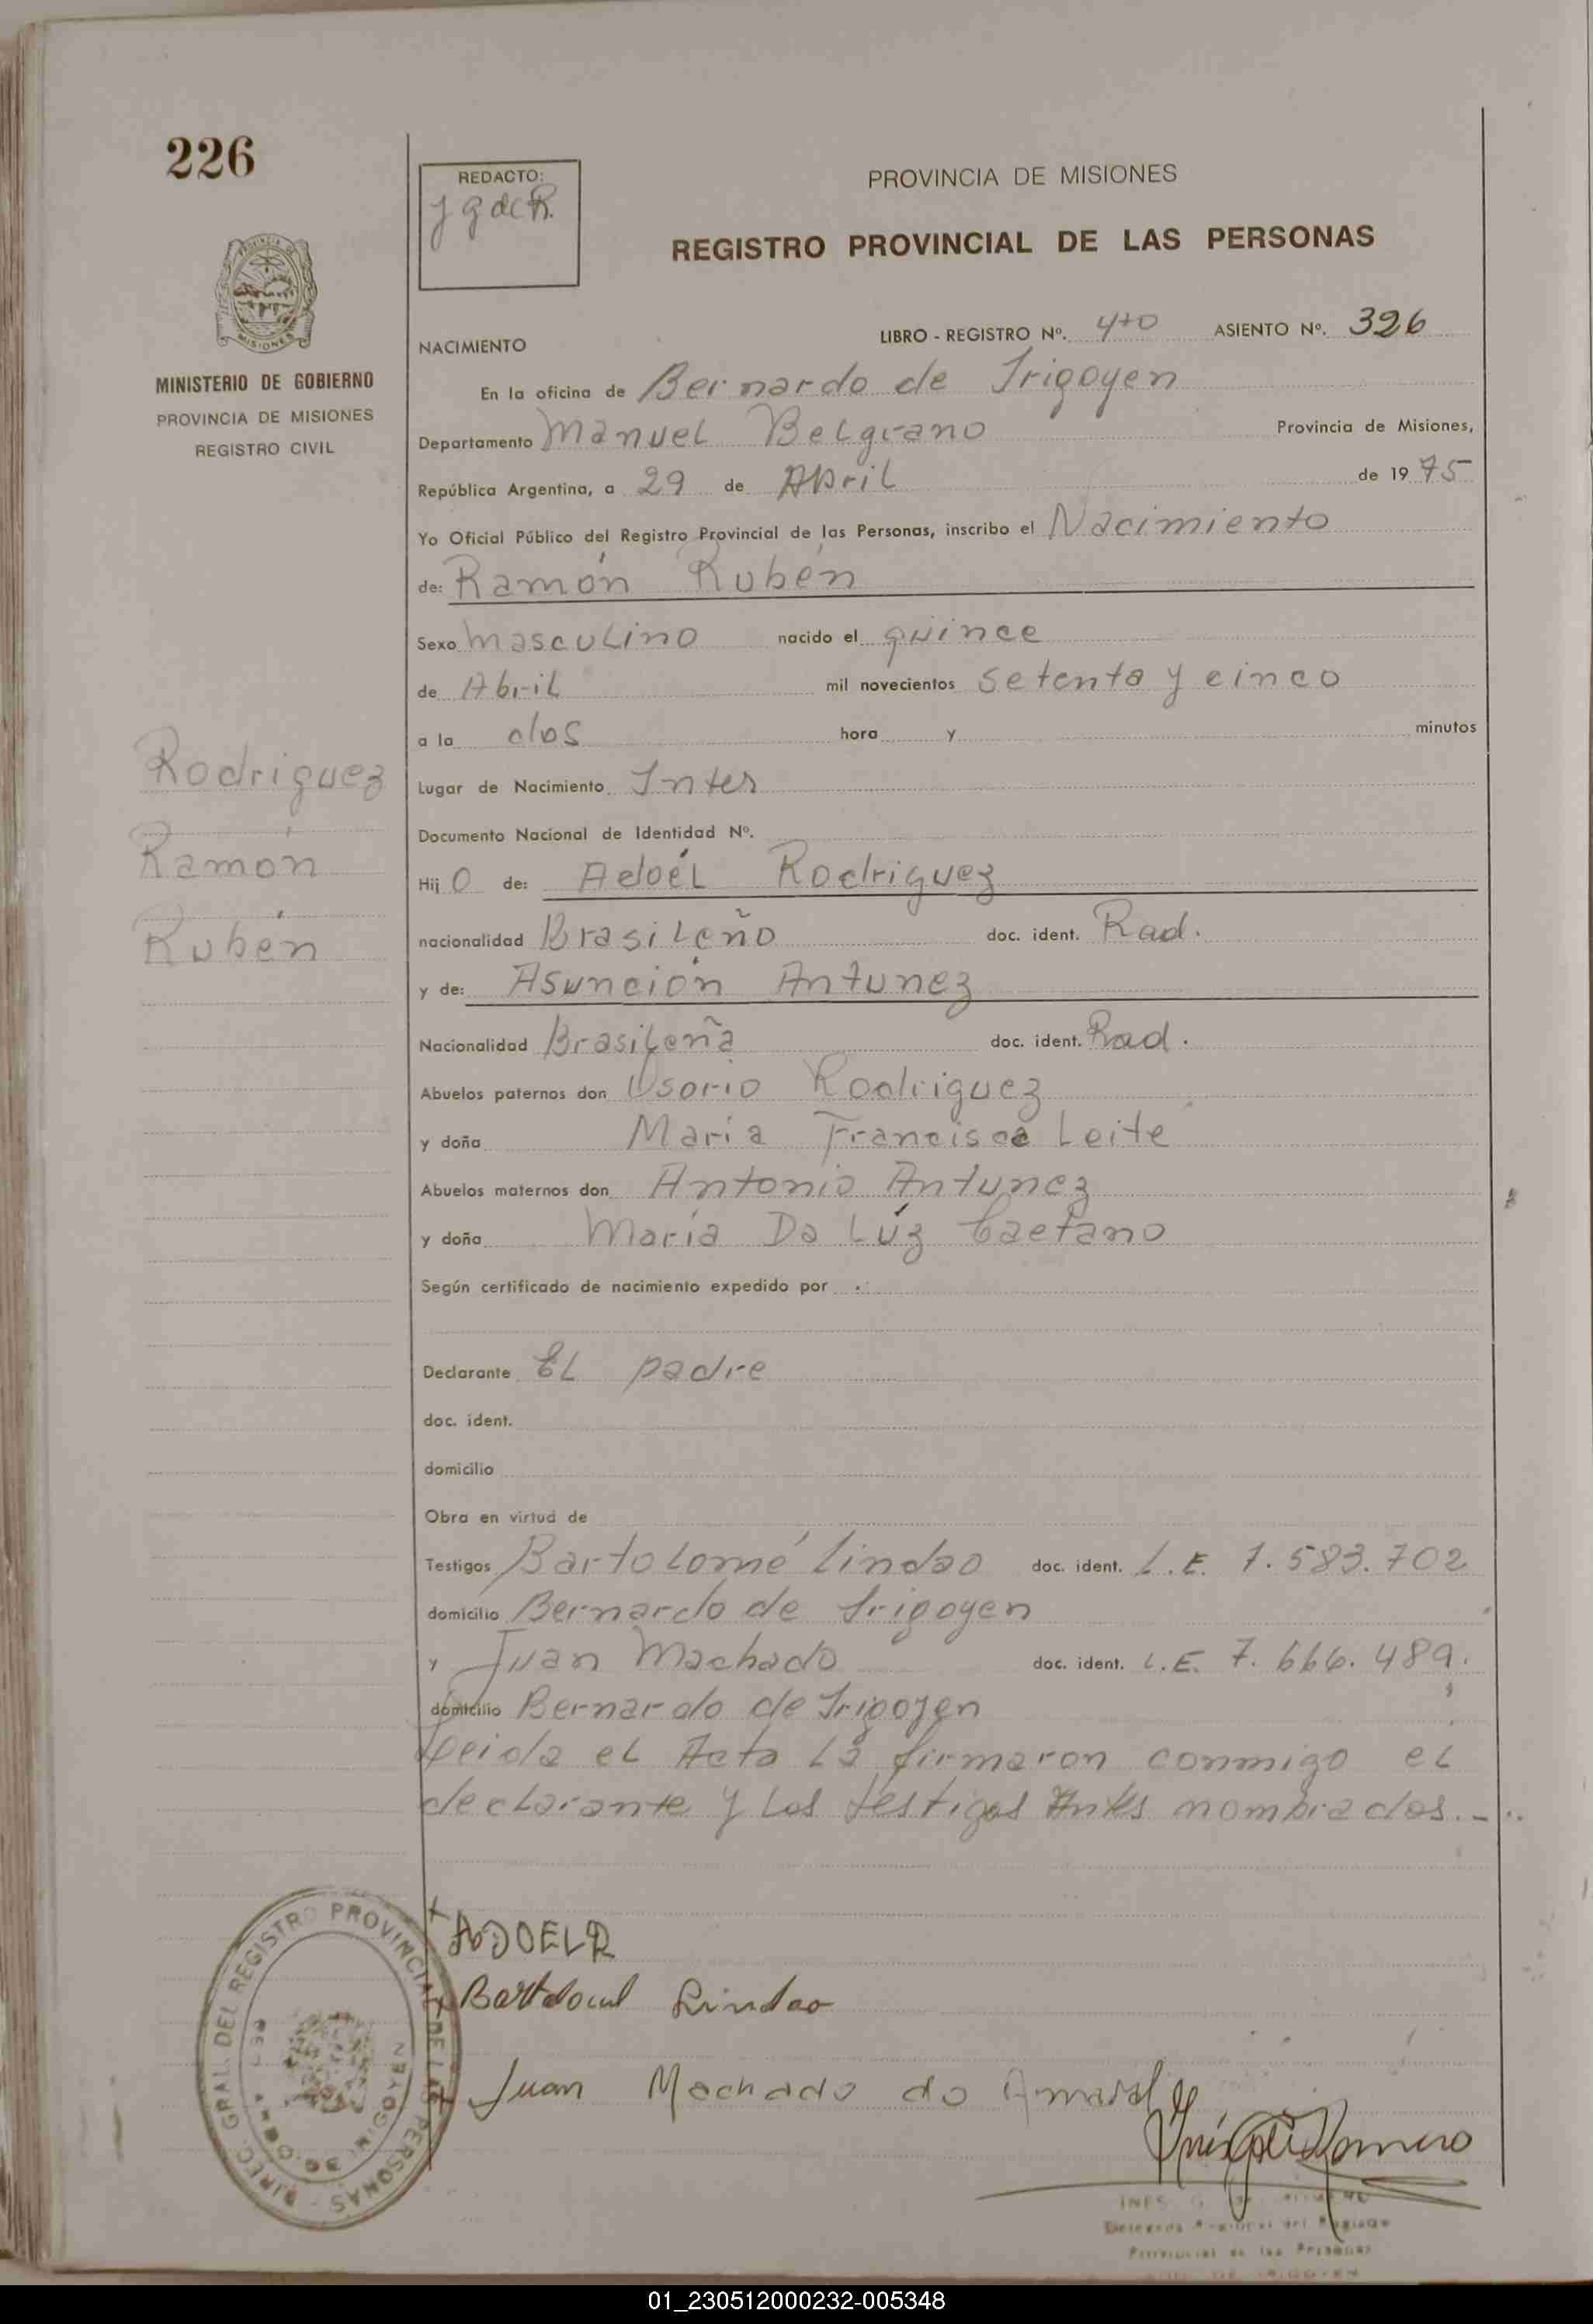 226
REDACTO:
J g de R.
PROVINCIA DE MISIONES
REGISTRO PROVINCIAL DE LAS PERSONAS
MISIONES
MINISTERIO DE GOBIERNO
PROVINCIA DE MISIONES
REGISTRO CIVIL
NACIMIENTO LIBRO - REGISTRO Nº. ASIENTO Nº. 326
En la oficina de Bernardo de Irigoyen
Departamento Manuel Belgrano Provincia de Misiones,
República Argentina, a 29 de Abril de 1975
Yo Oficial Público del Registro Provincial de las Personas, inscribo el Nacimiento
de: Ramón Rubén
Sexo masculino nacido el quince
de Abril mil novecientos setenta y cinco
a la dos hora y minutos
Rodriguez
Lugar de Nacimiento Inter
Documento Nacional de Identidad Nº.
Ramón
Hij o de: Adoél Rodriguez
Rubén
nacionalidad Brasileño doc. ident. Rad.
y de: Asunción Antunez
Nacionalidad Brasileña doc. ident. Rad.
Abuelos paternos don Osorio Rodriguez
y doña María Francisca Leite
Abuelos maternos don Antonio Antunez
y doña María Da Lúz Caetano
Según certificado de nacimiento expedido por
Declarante El padre
doc. ident.
domicilio
Obra en virtud de
Testigos Bartolomé Lindao doc. ident. L.E. 7.583.702
domicilio Bernardo de Irigoyen
y Juan Machado doc. ident. L.E. 7.666.489.
domicilio Bernardo de Irigoyen
Leida el Acta la firmaron conmigo el
declarante y los testigos Antes nombrados.-
ADOELR
Bartolomé Lindao
Juan Machado do Amaral
DIREC. GRAL. DEL REGISTRO PROVINCIAL DE LAS PERSONAS
Romero
INES G. de
Delegada Regional del Registro
Provincial de las Personas
01_230512000232-005348